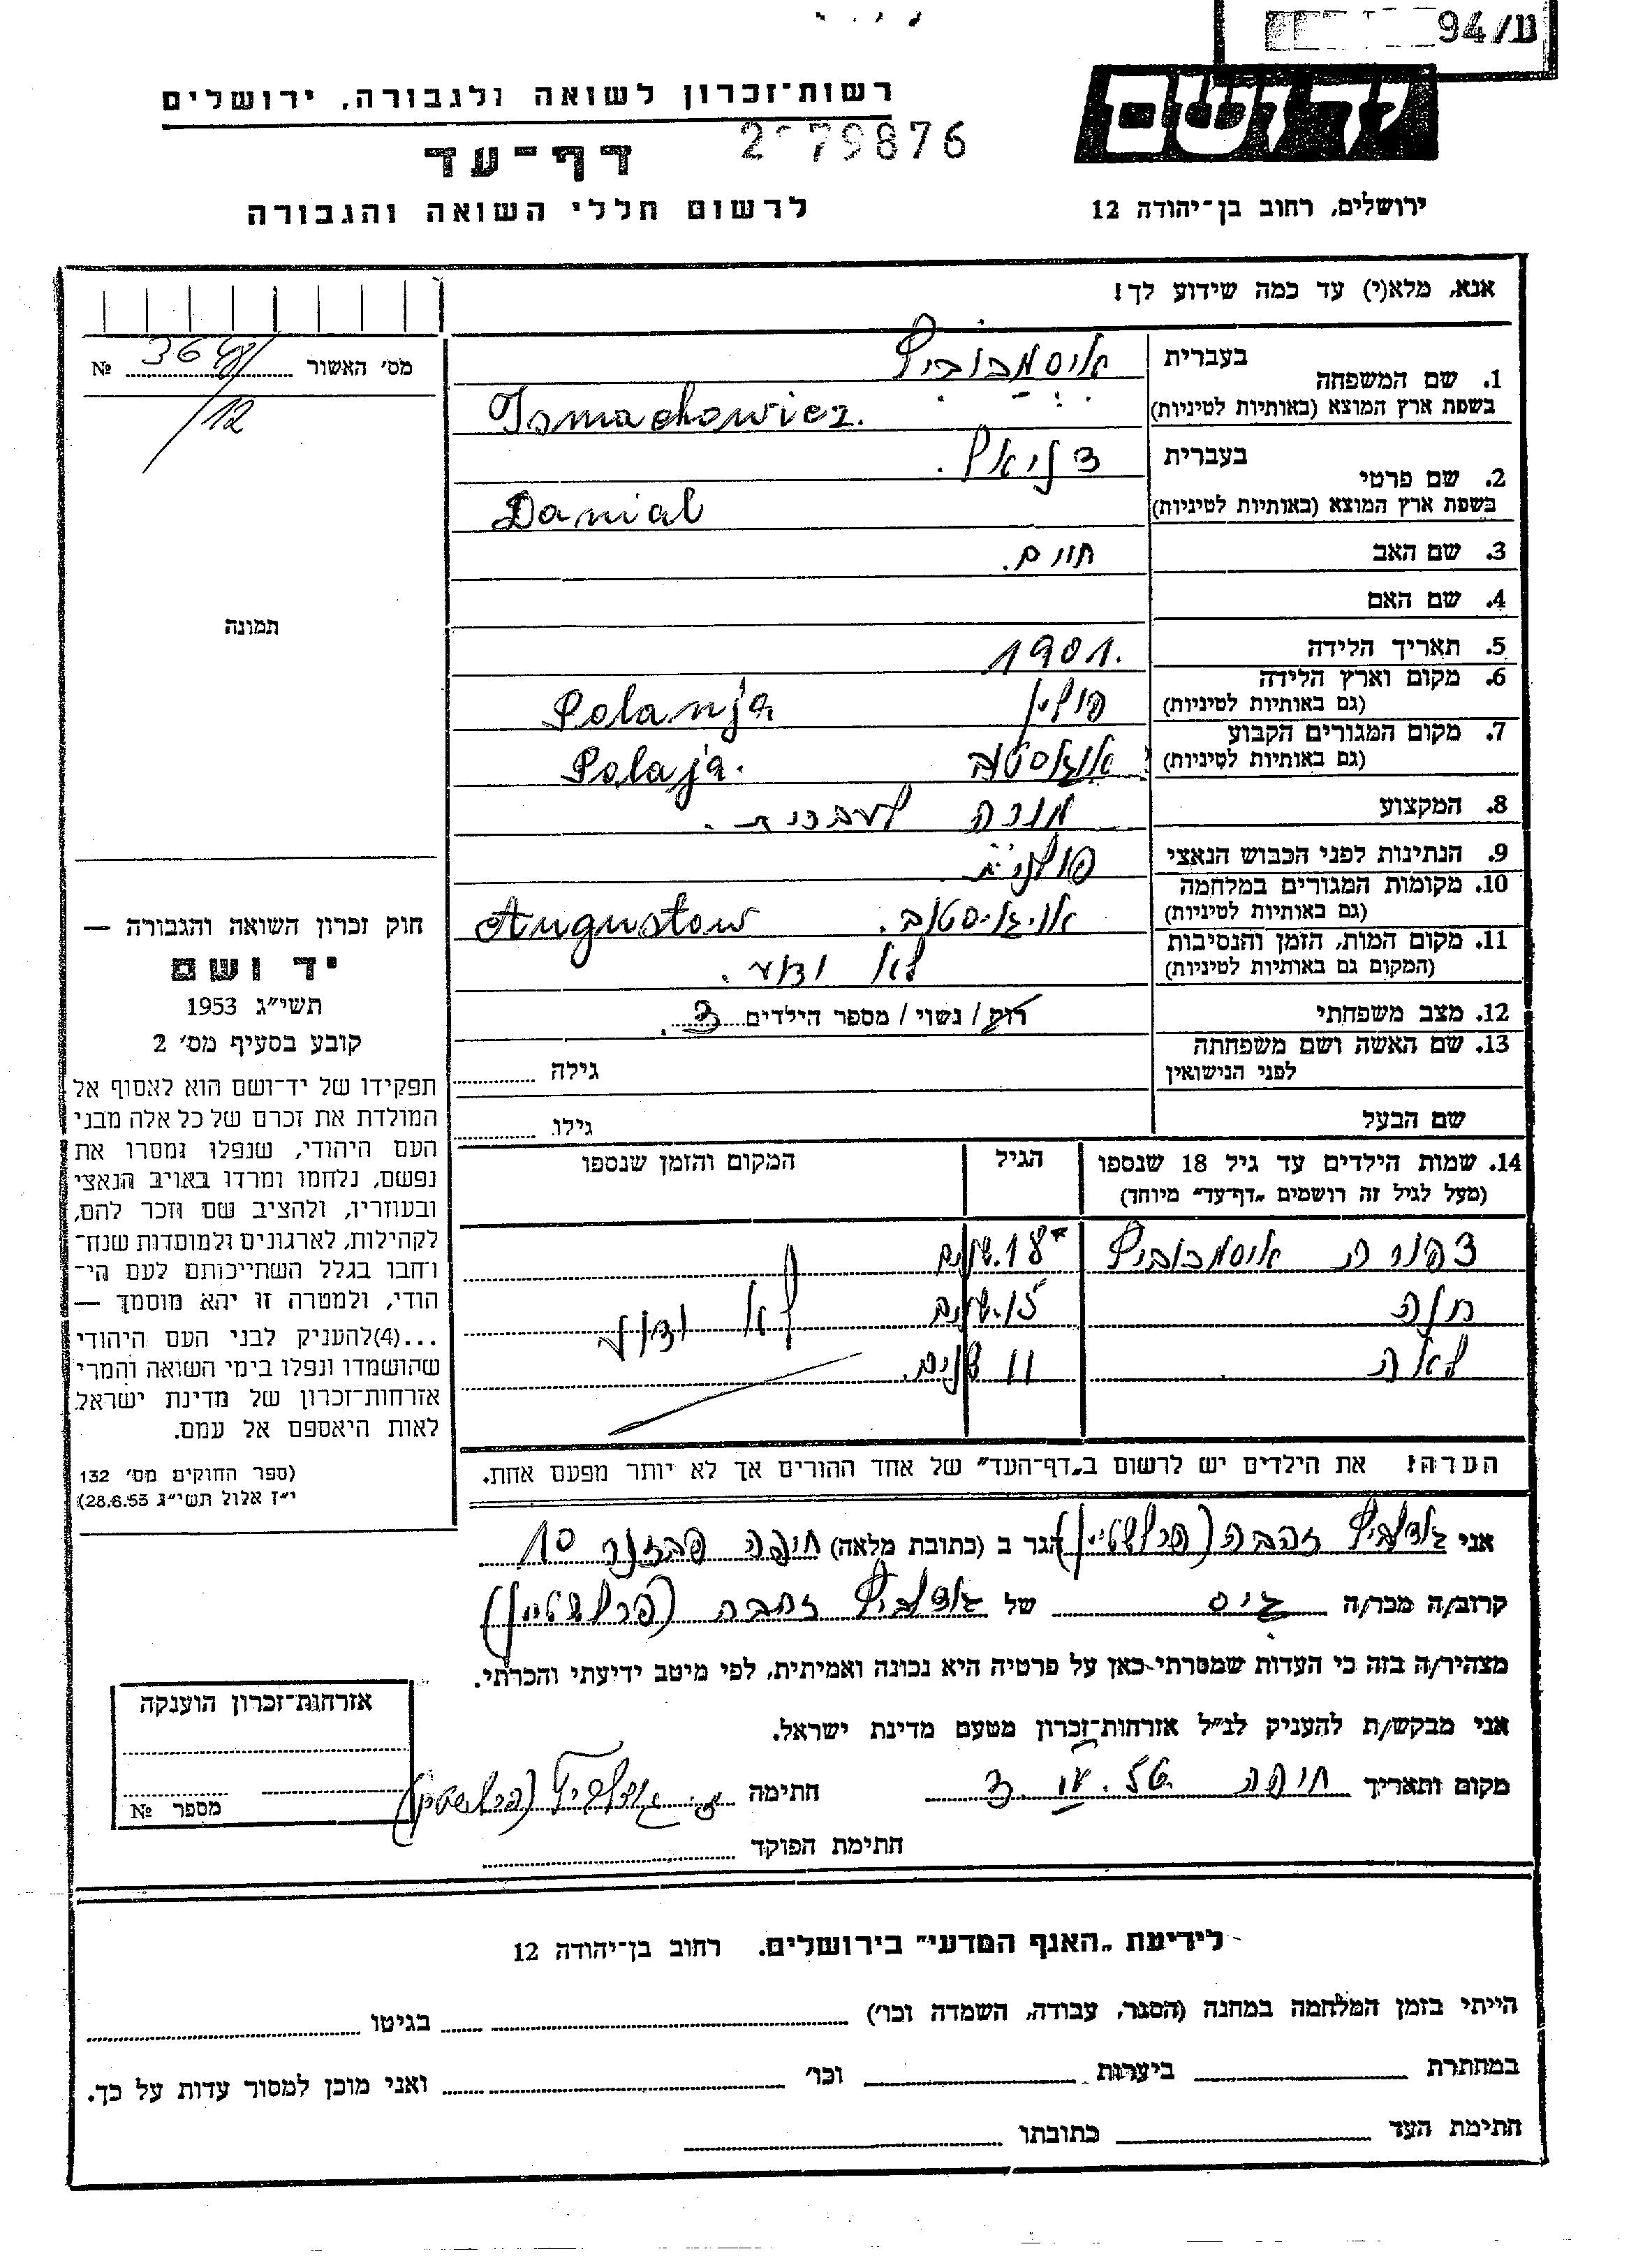 94/ע
רשות־זכרון לשואה ולגבורה, ירושלים
יד ושם
דף־עד
79876
לרשום חללי השואה והגבורה
ירושלים, רחוב בן־יהודה 12
אנא, מלא(י) עד כמה שידוע לך!
מס׳ האשור № 3648/12
1. שם המשפחה
בעברית איסמכוביץ
בשפת ארץ המוצא (באותיות לטיניות) Ismachowicz.
2. שם פרטי
בעברית דניאל.
בשפת ארץ המוצא (באותיות לטיניות) Danial
3. שם האב חיים.
4. שם האם
5. תאריך הלידה 1901.
6. מקום וארץ הלידה
(גם באותיות לטיניות) פולין Polanja
7. מקום המגורים הקבוע
(גם באותיות לטיניות) אוגוסטוב Polaja.
8. המקצוע מורה לעברית.
9. הנתינות לפני הכבוש הנאצי פולנית
10. מקומות המגורים במלחמה
(גם באותיות לטיניות) אויגוסטוב. Augustow
11. מקום המות, הזמן והנסיבות
(המקום גם באותיות לטיניות) לא ידוע.
12. מצב משפחתי רווק / נשוי / מספר הילדים 3.
13. שם האשה ושם משפחתה
לפני הנישואין גילה
שם הבעל גילו
14. שמות הילדים עד גיל 18 שנספו
(מעל לגיל זה רושמים „דף־עד״ מיוחד)
הגיל
המקום והזמן שנספו
צפורה איסמכוביץ 18 שנים
חנה 15 שנים לא ידוע
לאה 11 שנים.
תמונה
חוק זכרון השואה והגבורה —
יד ושם
תשי״ג 1953
קובע בסעיף מס׳ 2
תפקידו של יד־ושם הוא לאסוף אל
המולדת את זכרם של כל אלה מבני
העם היהודי, שנפלו ומסרו את
נפשם, נלחמו ומרדו באויב הנאצי
ובעוזריו, ולהציב שם וזכר להם,
לקהילות, לארגונים ולמוסדות שנח־
רחבו בגלל השתייכותם לעם הי־
הודי, ולמטרה זו יהא מוסמך —
...(4)להעניק לבני העם היהודי
שהושמדו ונפלו בימי השואה והמרי
אזרחות־זכרון של מדינת ישראל
לאות היאספם אל עמם.
(ספר החוקים מס׳ 132
י״ז אלול תשי״ג 28.8.53)
הערה! את הילדים יש לרשום ב„דף־העד״ של אחד ההורים אך לא יותר מפעם אחת.
אני זהבה הגר ב (כתובת מלאה) חיפה 10
קרוב/ה מכר/ה גיס של זהבה
מצהיר/ה בזה כי העדות שמסרתי כאן על פרטיה היא נכונה ואמיתית, לפי מיטב ידיעתי והכרתי.
אני מבקש/ת להעניק לנ״ל אזרחות־זכרון מטעם מדינת ישראל.
מקום ותאריך חיפה חתימה
חתימת הפוקד
אזרחות־זכרון הוענקה
מספר №
לידיעת „האגף המדעי״ בירושלים. רחוב בן־יהודה 12
הייתי בזמן המלחמה במחנה (הסגר, עבודה, השמדה וכו׳) בגיטו
במחתרת ביערות וכו׳ ואני מוכן למסור עדות על כך.
חתימת העד כתובתו